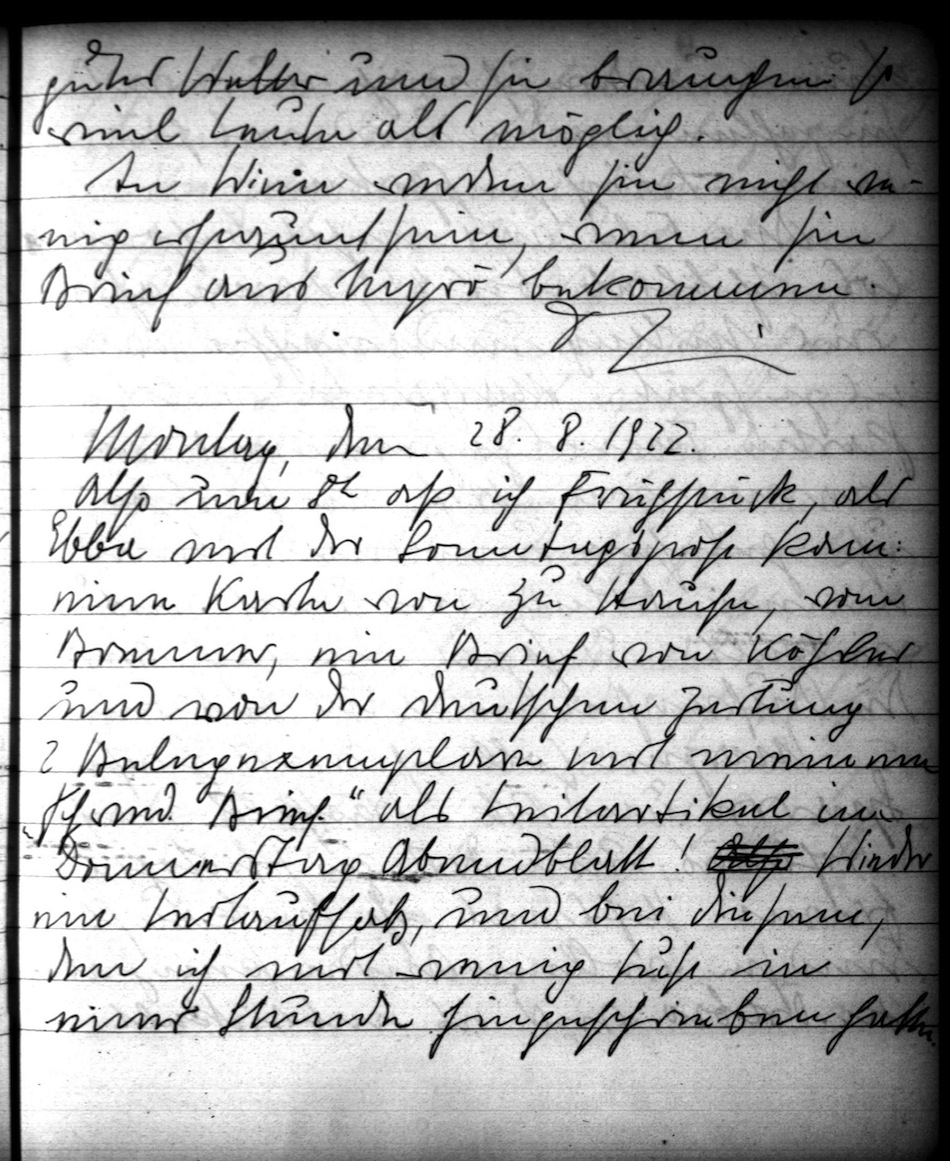 gutes Wetter und sie brauchen so
viel Leute als möglich.
In Wien werden sie nicht we-
nig erstaunt sein, wenn sie
Brief aus bekommen.
Montag, den 28. 8. 1922.
Also um 8h aß ich Frühstück, als
Ebba mit der Sonntagspost kam:
eine Karte von zu Hause, vom
Brenner, ein Brief von Köhler
und von der deutschen Zeitung
2 Belegexemplare mit meinem
"Schwed. Brief" als Leitartikel im
Donnerstag Abendblatt! Wieder
ein Leitaufsatz, und bei diesem,
den ich mit wenig Lust in
einer Stunde hingeschrieben hatte.